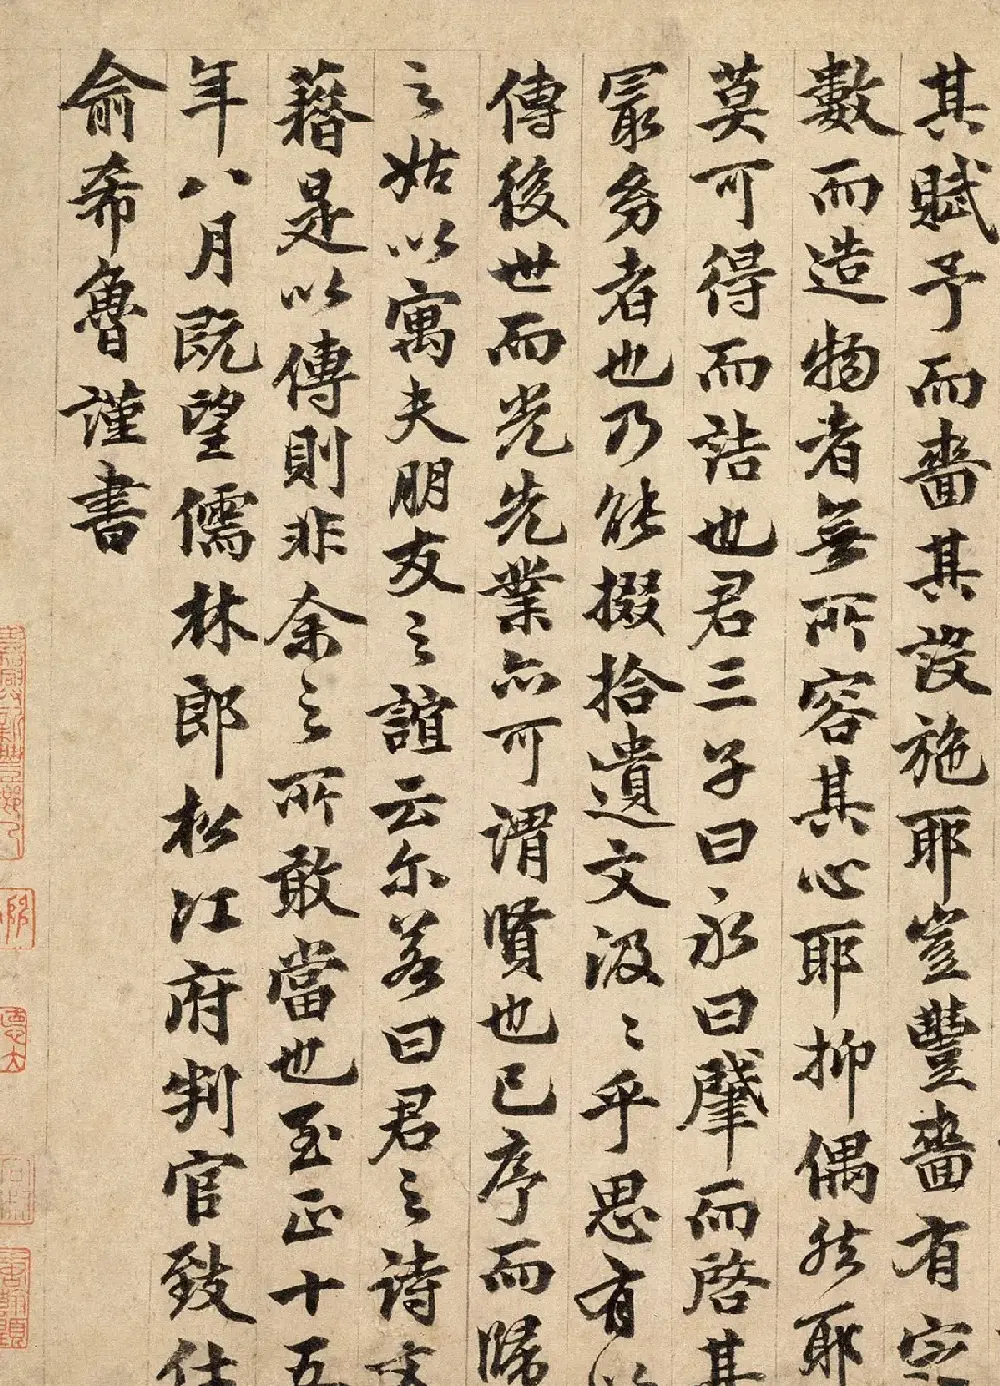 其賦予而嗇其設施耶豈豐嗇有定
數而造物者無所容其心耶抑偶然耶
莫可得而詰也君三子曰永曰肇而啓其
最幼者也乃能掇拾遺文汲〻乎思有以
傳後世而光先業亦可謂賢也已序而歸
之姑以寓夫朋友之誼云尔若曰君之詩文
藉是以傳則非余之所敢當也至正十五
年八月既望儒林郎松江府判官致仕
俞希魯謹書